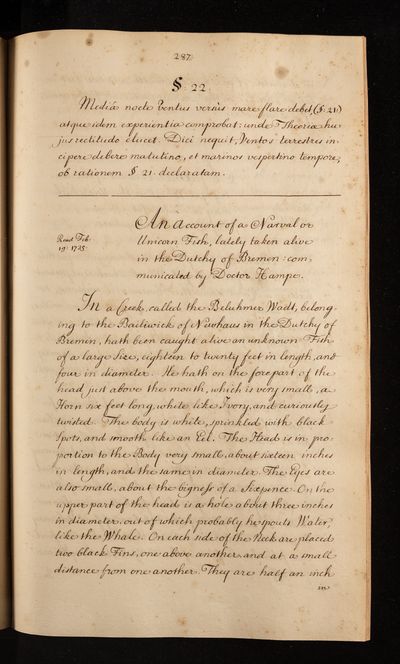 287
§ 22
Mediâ nocte Ventus versùs mare flare debet, (§. 21.)
atque idem experientia comprobat: unde Theoriæ hu
jus rectitudo elucet. Dici nequit, Ventos terrestres in,
cipere debere matutino, et marinos vespertino tempore,
ob rationem § 21. declaratam.
An Account of a Narval or
Read Feb.
Unicorn Fish, lately taken alive
in the Dutchy of Bremen: com,
municated by Doctor Hampe.
In a Creek, called the Beluhmer Wadt, belong,
ing to the Bailiwick of Newhaus in the Dutchy of
Bremen, hath been caught alive an unknown Fish
of a large Size, eighteen to twenty feet in length, and
four in diameter. He hath on the forepart of the
head just above the mouth, which is very small, a
Horn six feet long, white like Ivory, and curiously
twisted. The body is white, sprinkled with black
Spots, and smooth like an Eel. The Head is in pro
portion to the Body very small, about sixteen inches
in length, and the same in diameter. The Eyes are
also small, about the bigness of a Sixpence. On the
upper part of the head is a hole about three inches
in diameter, out of which probably he spouts Water,
like the Whale. On each side of the Neck are placed
two black Fins, one above another, and at a small
distance from one another. They are half an inch
in